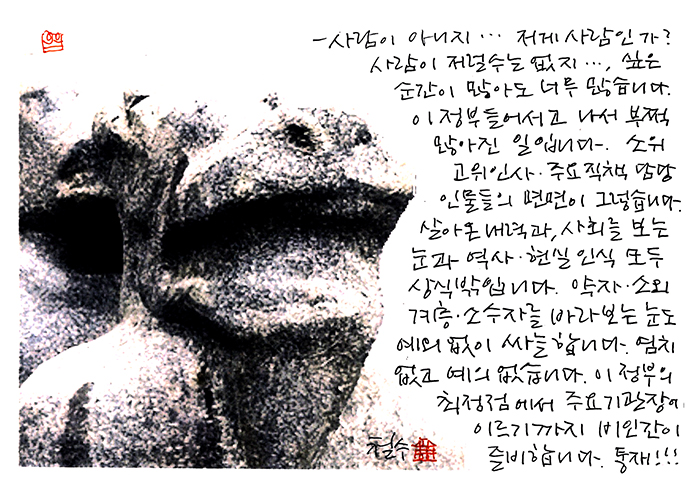 -사람이 아니지… 저게 사람인가?
사람이 저럴수는 없지…, 싶은
순간이 많아도 너무 많습니다.
이 정부들어서고 나서 부쩍
많아진 일입니다. 소위
고위인사·주요직책 담당
인물들의 면면이 그렇습니다.
살아온 내력과, 사회를 보는
눈과 역사·현실 인식 모두
상식밖입니다. 약자·소외
계층·소수자를 바라보는 눈도
예외 없이 싸늘합니다. 염치
없고 예의 없습니다. 이 정부의
최정점에서 주요기관장에
이르기까지 비인간이
즐비합니다. 통재!!!
철수